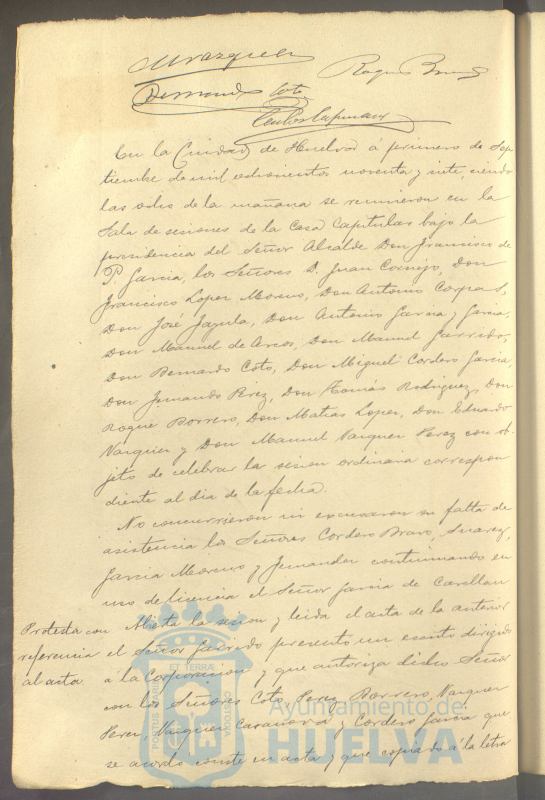 M Vazquez
Roque B
Bernardo Coto
En la Ciudad de Huelva á primero de Sep
tiembre de mil ochocientos noventa y siete, siendo
las ocho de la mañana se reunieron en la
Sala de sesiones de la Casa Capitular bajo la
presidencia del Señor Alcalde Don Francisco de
P. Garcia, los Señores D. Juan Cornejo, Don
Francisco Lopez Moreno, Don Antonio Corpas,
Don José Jazula, Don Antonio Garcia y Garcia,
Don Manuel de Arcos, Don Manuel Garrido,
Don Bernardo Coto, Don Miguel Cordero Garcia,
Don Fernando Perez, Don Tomás Rodriguez, Don
Roque Borrero, Don Matias Lopez, Don Eduardo
Vazquez y Don Manuel Vazquez Perez con ob-
jeto de celebrar la sesion ordinaria correspon
diente al dia de la fecha.
No concurrieron ni excusaron su falta de
asistencia los Señores Cordero Bravo, Suarez,
Garcia Moreno y Fernandez continuando en
uso de licencia el Señor Garcia de
Protesta con
referencia
al acta
Abierta la sesion y leida el acta de la anterior
el Señor Garrido presentó un escrito dirigido
á la Corporacion y que autoriza dicho Señor
con los Señores Coto, Perez, Borrero, Vazquez
Perez, Vazquez Casanova y Cordero Garcia que
se acordó conste en acta y que copiado á la letra
PORTUS MARIS ET TERRÆ CUSTODIA
Ayuntamiento de
HUELVA